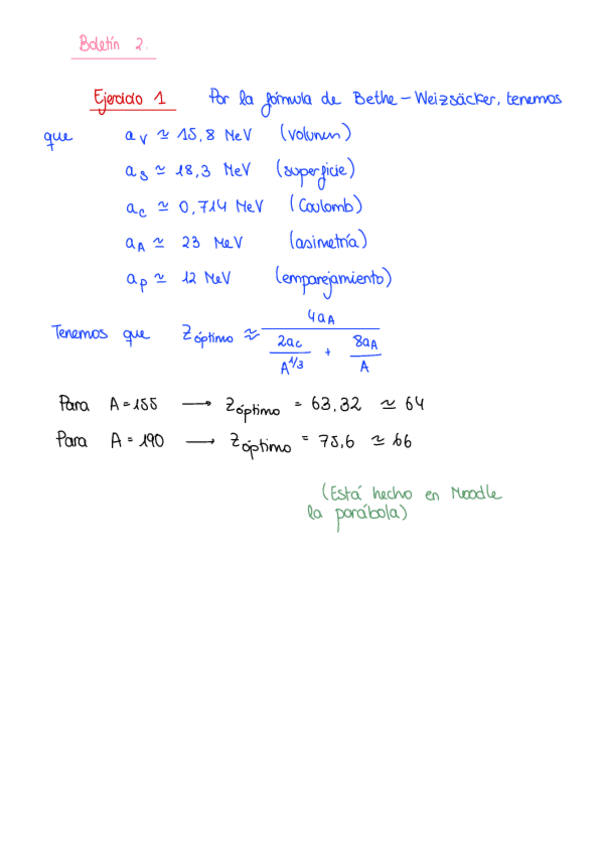 Boletín 2.
Ejercicio 1 Por la fórmula de Bethe-Weizsäcker, tenemos
que a_V ≃ 15,8 MeV (volumen)
a_S ≃ 18,3 MeV (superficie)
a_C ≃ 0,714 MeV (Coulomb)
a_A ≃ 23 MeV (asimetría)
a_P ≃ 12 MeV (emparejamiento)
Tenemos que Z_óptimo ≈ 4a_A / (2a_C / A^{1/3} + 8a_A / A)
Para A = 155 → Z_óptimo = 63,32 ≃ 64
Para A = 190 → Z_óptimo = 75,6 ≃ 66
(Está hecho en Moodle
la parábola)